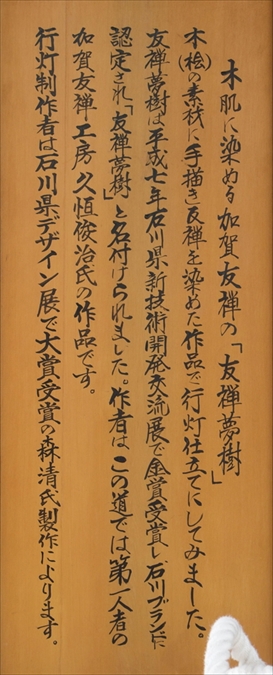 木肌に染める加賀友禅の「友禅夢樹」
木(桧)の素材に手描き友禅を染めた作品で行灯仕立てにしてみました。
友禅夢樹は平成七年石川県新技術開発交流展で金賞受賞し、石川ブランドに
認定され「友禅夢樹」と名付けられました。作者はこの道では第一人者の
加賀友禅工房久恒俊治氏の作品です。
行灯制作者は石川県デザイン展で大賞受賞の森清氏製作によります。